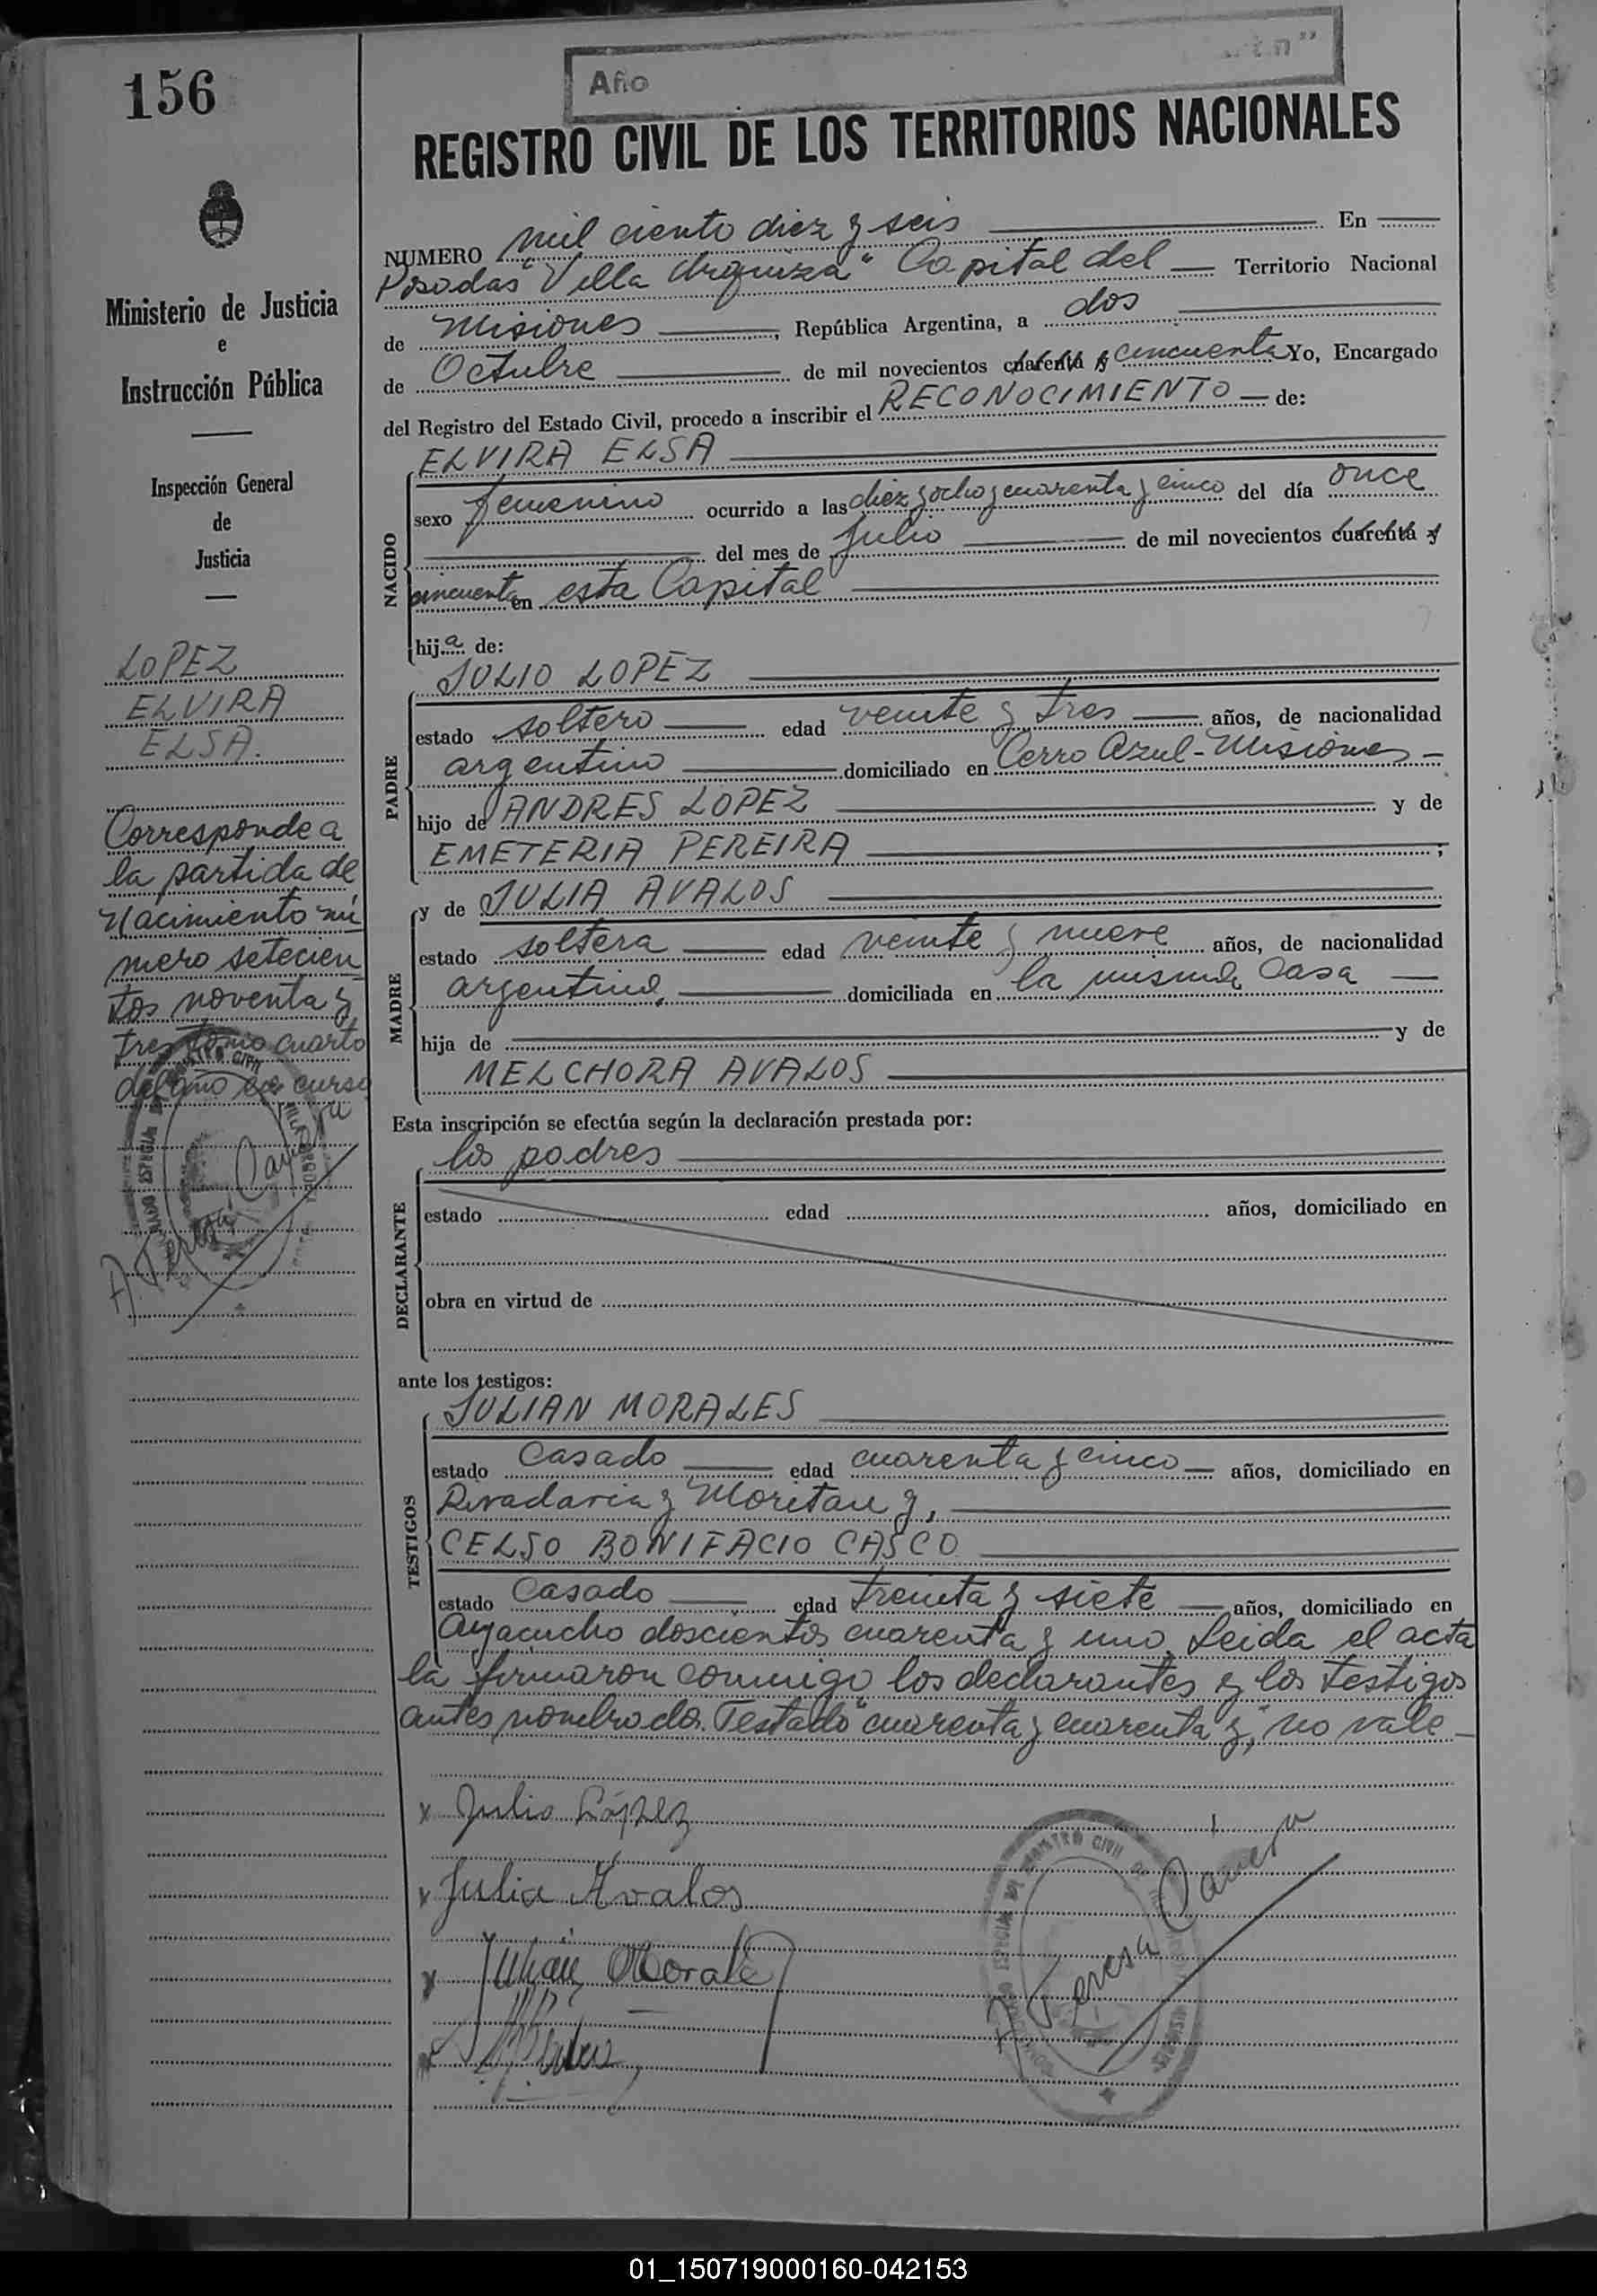 156
Año
REGISTRO CIVIL DE LOS TERRITORIOS NACIONALES
Ministerio de Justicia
e
Instrucción Pública
Inspección General
de
Justicia
LOPEZ
ELVIRA
ELSA.
Corresponde a
la partida de
Nacimiento nú
mero setecien
tos noventa y
tres tomo cuarto
del año en curso
NUMERO mil ciento diez y seis En
Posadas "Villa Urquiza" Capital del Territorio Nacional
de Misiones, República Argentina, a dos
de Octubre de mil novecientos cuarenta y cincuenta Yo, Encargado
del Registro del Estado Civil, procedo a inscribir el RECONOCIMIENTO de:
NACIDO
ELVIRA ELSA
sexo femenino ocurrido a las diez y ocho y cuarenta y cinco del día once
del mes de Julio de mil novecientos cuarenta y
cincuenta en esta Capital
hija de:
PADRE
JULIO LOPEZ
estado soltero edad veinte y tres años, de nacionalidad
argentino domiciliado en Cerro Azul - Misiones
hijo de ANDRES LOPEZ y de
EMETERIA PEREIRA ;
MADRE
y de JULIA AVALOS
estado soltera edad veinte y nueve años, de nacionalidad
argentina, domiciliada en la misma casa
hija de y de
MELCHORA AVALOS
Esta inscripción se efectúa según la declaración prestada por:
DECLARANTE
los padres
estado edad años, domiciliado en
obra en virtud de
ante los testigos:
TESTIGOS
JULIAN MORALES
estado Casado edad cuarenta y cinco años, domiciliado en
Rivadavia y Moritan y,
CELSO BONIFACIO CASCO
estado Casado edad treinta y siete años, domiciliado en
Ayacucho doscientos cuarenta y uno. Leida el acta
la firmaron conmigo los declarantes y los testigos
antes nombrados. Testado "cuarenta y cuarenta y," no vale
x Julio López
x Julia Avalos
x Julián Morales
x
A. Teresa
01_150719000160-042153